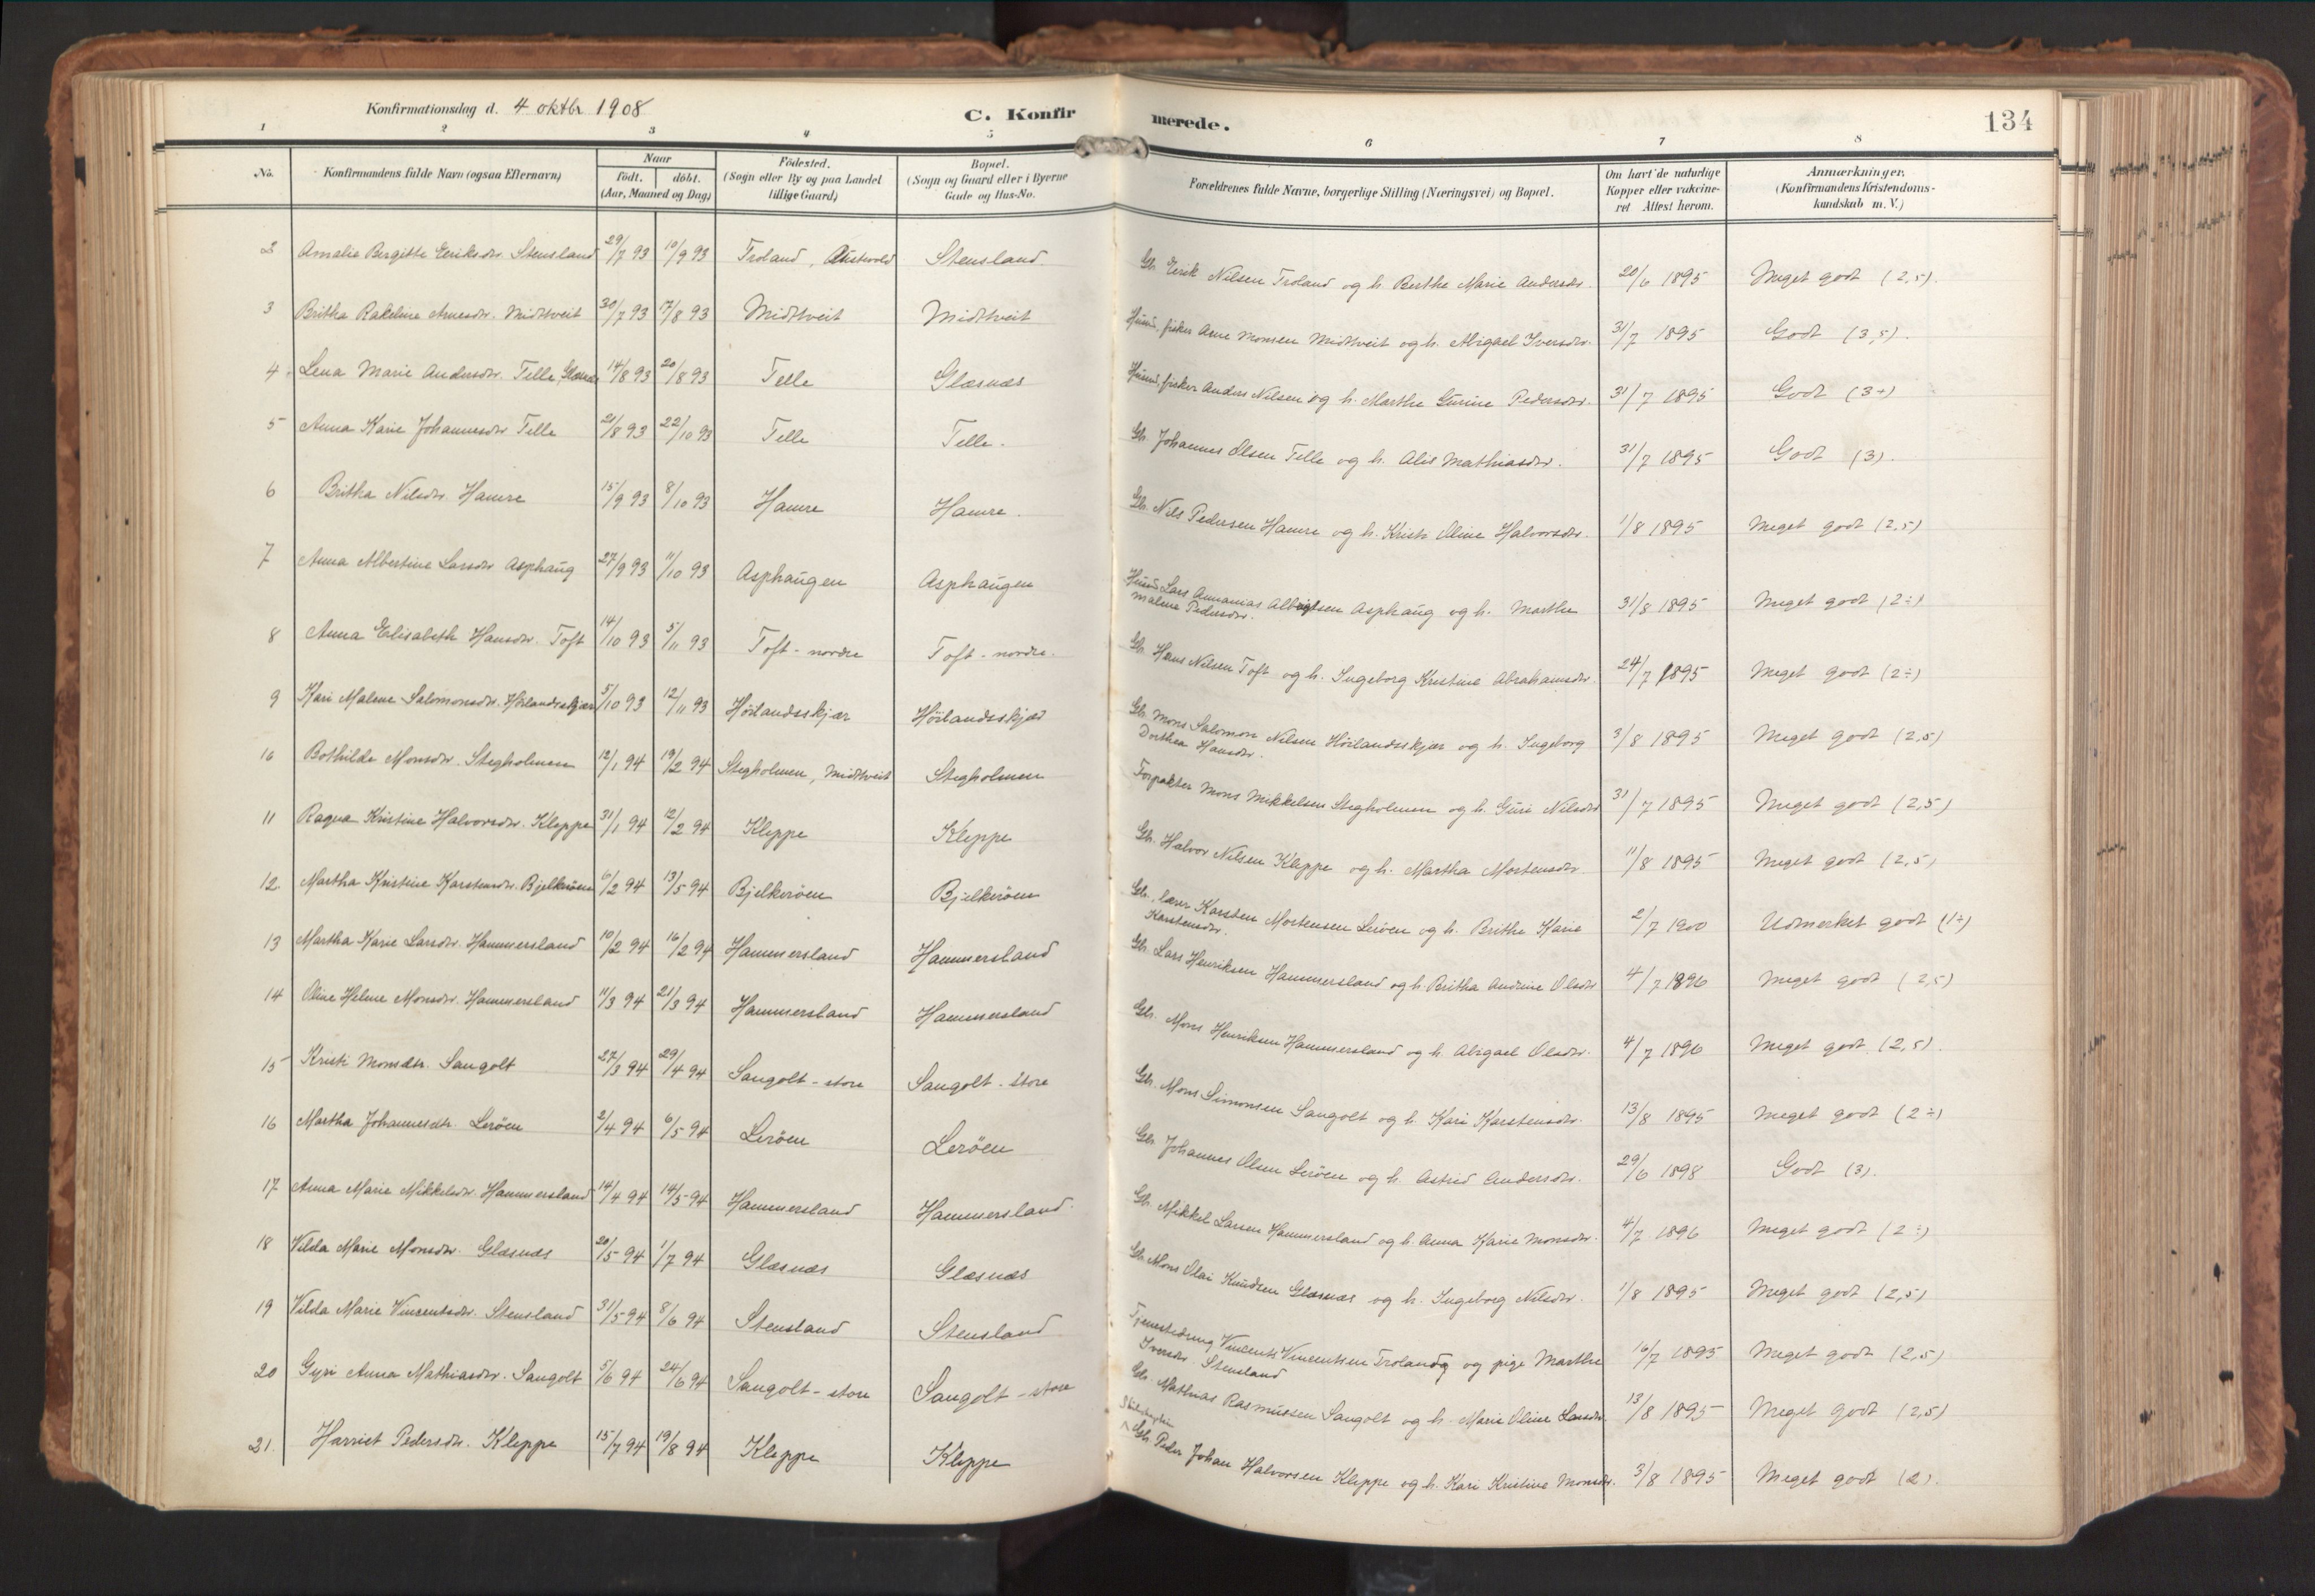 Konfirmationsdag d. 4 oktbr 1908
C. Konfirmerede.
134
1 2 3 4 5 6 7 8
No.
Konfirmandens fulde Navn (ogsaa Efternavn)
Naar
födt. döbt.
(Aar, Maaned og Dag)
Födested.
(Sogn eller By og paa Landet
tillige Gaard)
Bopæl.
(Sogn og Gaard eller i Byerne
Gade og Hus-No.
Forældrenes fulde Navne, borgerlige Stilling (Næringsvei) og Bopæl.
Om havt de naturlige
Kopper eller vakcine-
ret Attest herom.
Anmærkninger.
(Konfirmandens Kristendoms-
kundskab m. V.)
2 Amalie Bergitte Eeriksdtr. Stensland 29/7 93 10/9 93 Troland, Austevold Stensland. Gbr. Eerik Nilsen Troland og h. Berthe Marie Andersdtr. 20/6 1895 Meget godt (2,5).
3 Britha Rakeline Arnesdtr. Midttveit 30/7 93 17/8 93 Midttveit Midttveit Husm, fisker Arne Monsen Midttveit og h. Abigael Iversdtr. 31/7 1895 Godt (3,5).
4 Lena Marie Andersdtr. Telle, Glæsnæs 14/8 93 20/8 93 Telle Glæsnæs Husm, fisker Anders Nilsen og h. Marthe Gurine Pedersdtr. 31/7 1895 Godt (3+)
5 Anna Karie Johannesdtr Telle 21/8 93 22/10 93 Telle Telle. Gbr. Johannes Olsen Telle og h. Alis Mathiasdtr. 31/7 1895 Godt (3).
6 Britha Nilsdtr. Hamre 15/9 93 8/10 93 Hamre Hamre. Gbr. Nils Pedersen Hamre og h. Kristi Oline Halvorsdtr. 1/8 1895 Meget godt (2,5)
7 Anna Albertine Larsdtr Asphaug 27/9 93 11/10 93 Asphaugen Asphaugen Husm Lars Annanias Albrigtsen Asphaug og h. Marthe
Malene Pedersdtr. 31/8 1895 Meget godt (2÷)
8 Anna Elisabeth Hansdtr. Toft 14/10 93 5/11 93 Toft - nordre Toft - nordre. Gbr. Hans Nilsen Toft og h. Ingeborg Kristine Abrahamsdtr. 24/7 1895 Meget godt (2÷)
9 Kari Malene Salomonsdtr. Höilandsskjær 5/10 93 12/11 93 Höilandsskjær Höilandsskjær Gbr. Mons Salomon Nilsen Höilandsskjær og h. Ingeborg
Dorthea Hansdtr. 3/8 1895 Meget godt (2,5)
10 Bothilde Monsdtr. Stegholmen 12/1 94 19/2 94 Stegholmen, Midttveit Stegholmen Forpakter Mons Mikkelsen Stegholmen og h. Guri Nilsdtr 31/7 1895 Meget godt (2,5)
11 Ragna Kristine Halvorsdtr. Kleppe 31/1 94 12/2 94 Kleppe Kleppe Gbr. Halvor Nilsen Kleppe og h. Martha Mortensdtr. 11/8 1895 Meget godt (2,5)
12. Martha Kristine Karstensdtr. Bjelkeröen 6/2 94 13/5 94 Bjelkeröen Bjelkeröen Gbr., lærer Karsten Mortensen Leröen og h. Brithe Karie
Karstensdtr. 2/7 1900 Udmerket godt (1÷)
13 Martha Karie Larsdtr. Hammersland 10/2 94 16/2 94 Hammersland Hammersland Gbr. Lars Henriksen Hammersland og h. Britha Andrine Olsdtr 4/7 1896 Meget godt (2,5)
14 Oline Helene Monsdtr. Hammersland 11/3 94 21/3 94 Hammersland Hammersland Gbr. Mons Henriksen Hammersland og h. Abigael Olsdtr. 4/7 1896 Meget godt (2,5).
15 Kristi Monsdtr. Sangolt 27/3 94 29/4 94 Sangolt - store Sangolt - store Gbr. Mons Simonsen Sangolt og h. Kari Karstensdtr. 13/8 1895 Meget godt (2÷)
16 Martha Johannesdtr. Leröen 2/4 94 6/5 94 Leröen Leröen Gbr. Johannes Olsen Leröen og h. Astrid Andersdtr. 29/6 1898 Godt (3).
17 Anna Marie Mikkelsdtr. Hammersland 14/4 94 14/5 94 Hammersland Hammersland. Gbr. Mikkel Larsen Hammersland og h. Anna Karie Monsdtr. 4/7 1896 Meget godt (2÷)
18 Vilda Marie Monsdtr. Glæsnæs 20/5 94 1/7 94 Glæsnæs Glæsnæs Gbr. Mons Olai Knudsen Glæsnæs og h. Ingeborg Nilsdtr. 1/8 1895 Meget godt (2,5)
19 Vilda Marie Vincentsdtr. Stensland 31/5 94 8/6 94 Stensland Stensland Tjenestedreng Vincents Vincentsen Troland og pige Marthe
Iversdtr. Stensland 16/7 1895 Meget godt (2,5)
20 Guri Anna Mathiasdtr. Sangolt 5/6 94 24/6 94 Sangolt - store Sangolt - store Gbr. Mathias Rasmussen Sangolt og h. Marie Oline Larsdtr. 13/8 1895 Meget godt (2,5)
21. Harriet Pedersdtr. Kleppe 15/7 94 19/8 94 Kleppe Kleppe Gbr. Peder Johan Halvorsen Kleppe og h. Kari Kristine Monsdtr. 3/8 1895 Meget godt (2).